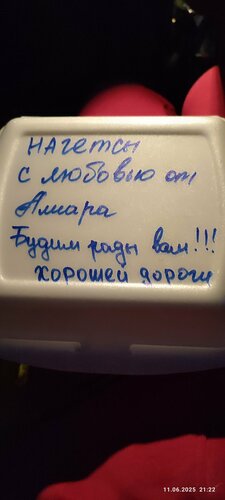 Нагетсы
с любовью от
Амара
Будим рады вам!!!
хорошей дороги
11.06.2025 21:22